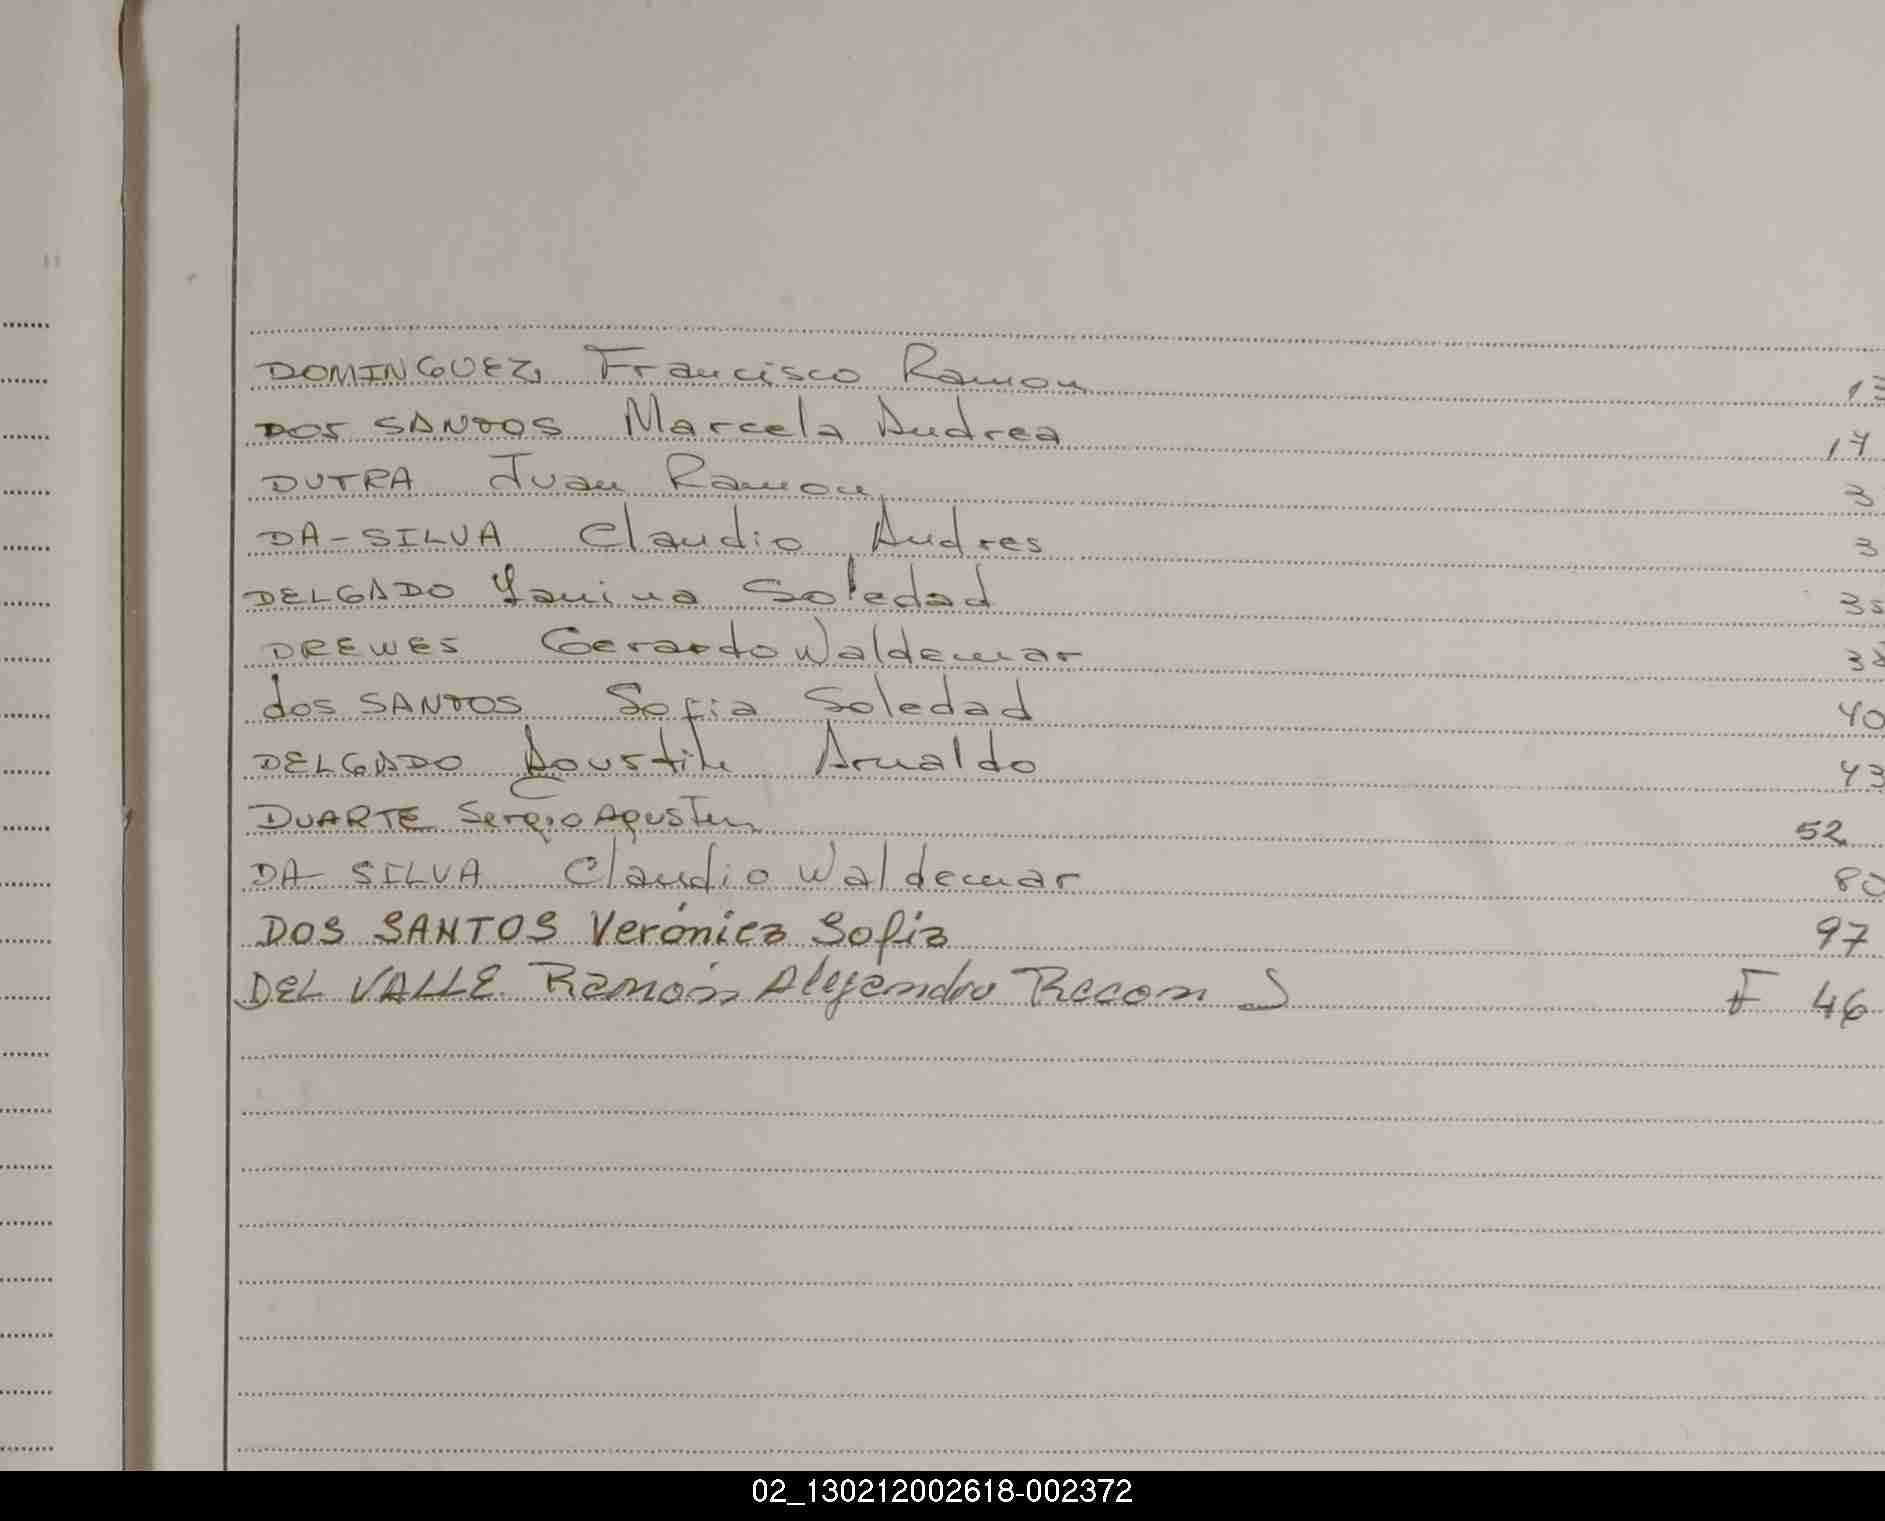 DOMINGUEZ, Francisco Ramon 13
DOS SANTOS Marcela Andrea 17
DUTRA Juan Ramon 3
DA-SILVA Claudio Andres 3
DELGADO Yanina Soledad 35
DREWES Gerardo Waldemar 38
dos SANTOS Sofia Soledad 40
DELGADO Agustin Arnaldo 43
DUARTE Sergio Agustin 52
DA SILVA Claudio Waldemar 80
DOS SANTOS Verónica Sofia 97
DEL VALLE Ramón Alejandro Recon S F 46
02_130212002618-002372